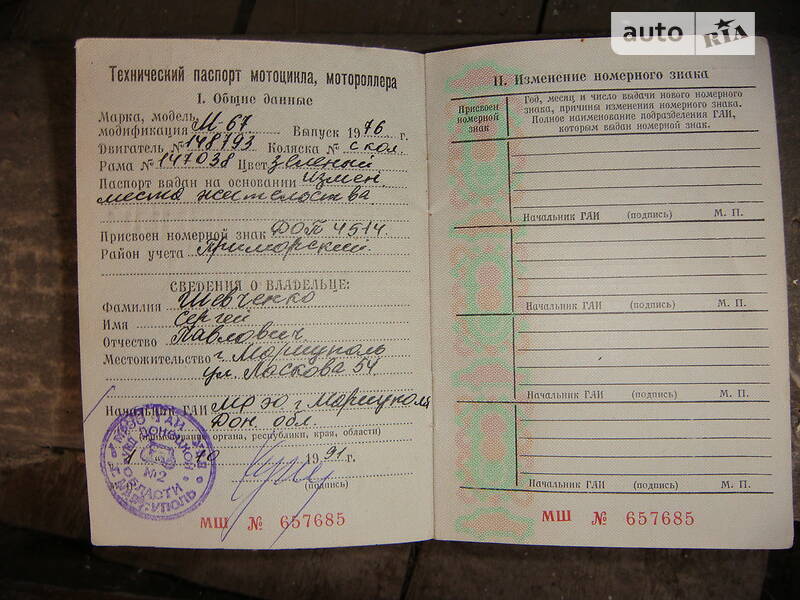 auto RIA
Технический паспорт мотоцикла, мотороллера
I. Общие данные
Марка, модель,
модификация М-67 Выпуск 1976 г.
Двигатель № 148793 Коляска № с кол.
Рама № 147038 Цвет зеленый
Паспорт выдан на основании измен.
места жительства
Присвоен номерной знак ДОТ 4514
Район учета Приморский
СВЕДЕНИЯ О ВЛАДЕЛЬЦЕ:
Фамилия Шевченко
Имя Сергей
Отчество Павлович
Местожительство г. Мариуполь
ул.Láскова 54
Начальник ГАИ МРЭО г. Мариуполя
Дон. обл.
органа, республики, края, области)
10 1991 г.
(подпись)
МРЭО ГАИ УВД ДОНЕЦКОЙ ОБЛАСТИ г. МАРИУПОЛЬ №2
МШ № 657685
II. Изменение номерного знака
Присвоен номерной знак
Год, месяц и число выдачи нового номерного
знака, причины изменения номерного знака.
Полное наименование подразделения ГАИ,
которым выдан номерной знак.
Начальник ГАИ (подпись) М. П.
Начальник ГАИ (подпись) М. П.
Начальник ГАИ (подпись) М. П.
Начальник ГАИ (подпись) М. П.
МШ № 657685